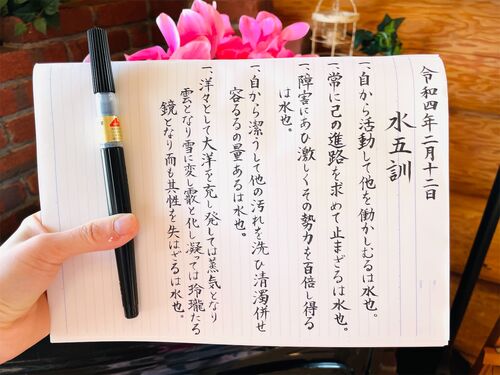 令和四年二月十二日
水五訓
一、自から活動して他を働かしむるは水也。
一、常に己の進路を求めて止まざるは水也。
一、障害にあひ激しくその勢力を百倍し得る
は水也。
一、自から潔うして他の汚れを洗ひ清濁併せ
容るるの量あるは水也。
一、洋々として大洋を充し発しては蒸気となり
雲となり雪に変し霰と化し凝っては玲瓏たる
鏡となり而も其性を失はざるは水也。